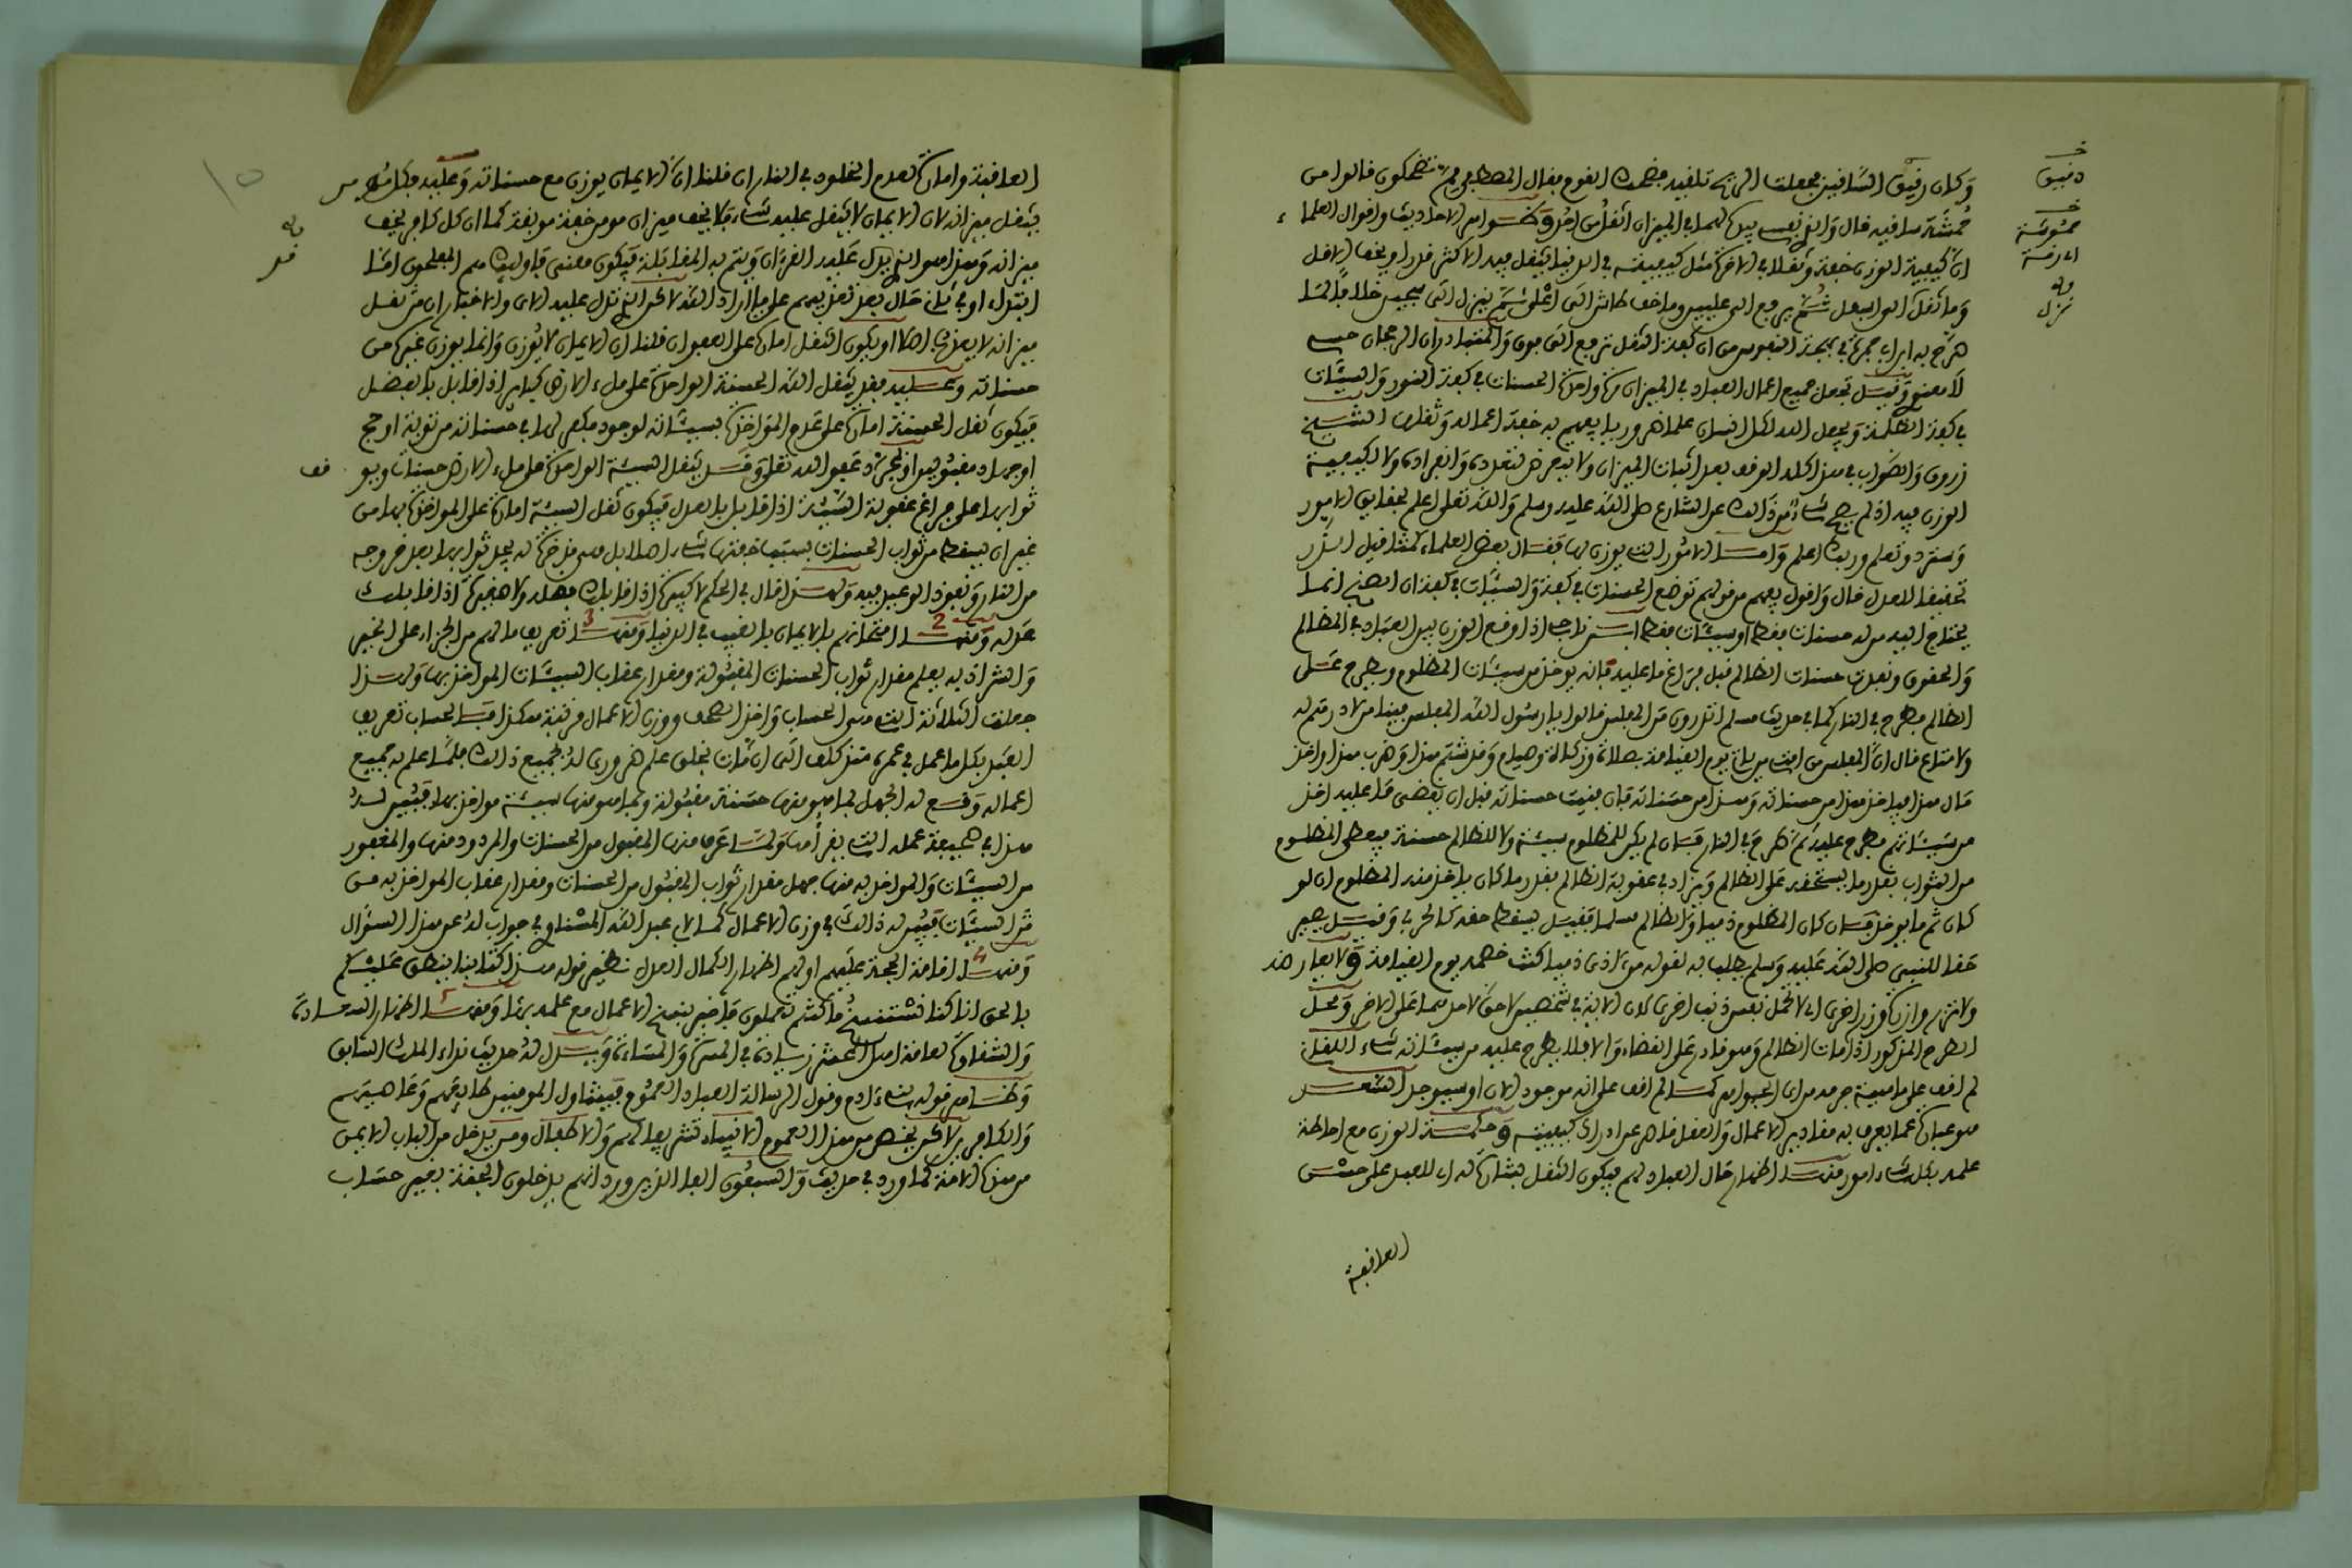 وكان رقيق الساقين فجعلت الريح تلقيه فضحك القوم فقال المصطفى مم تضحكون قالوا من
حمشة ساقيه قال والذي نفسي بيده لهما في الميزان اثقل من احد وظـــواهر الاحاديث واقوال العلماء
ان كيفية الوزن خفة وثقلا في الاخرة مثل كيفيته في الدنيا يثقل فيه الاكثر قدرا ويخف الاقل
وما ثقل الى اسفل ثم يرفع الى عليين وما خف طاش الى اعلى ثم ينزل الى سجين خلافا لما
صرح به ابن ابي جمرة في بهجة النفوس من ان كفة الثقل ترفع الى فوق والمتبادر ان الرجحان حسي
لا معنوي وقيل تجعل جميع اعمال العباد في الميزان مرة واحدة الحسنات في كفة النور والسيئات
في كفة الظلمة ويجعل الله لكل انسان علما ضروريا يفهم به خفة اعماله وثقلها الشيخ
زروق والصواب في هذا كله الوقف بعد اثبات الميزان ولا يتعرض لتعدده وانفراده ولا لكيفية
الوزن فيه اذ لم يصح شيء من ذالك عن الشارع صلى الله عليه وسلم والله تعلى اعلم بحقايق الامور
وسترد وتعلم وربك اعلم وامــا الامور التي يوزن لها فقــال بعض العلماء كمثاقيل الذر
تحقيقا للعدل قال واقول يفهم من قولهم توضع الحسنات في كفة والسيئات في كفة ان الصنج انما
يحتاج اليه من له حسنات فقط او سيئات فقط ابن ناجي اذا وقع الوزن بين العباد في المظالم
والحقوق ونفدت حسنات الظالم قبل فراغ ما عليه فانه يوخذ من سيئات المظلوم ويطرح على
الظالم فيطرح في النار كما في حديث مسلم اتدرون من المفلس قالوا يا رسول الله المفلس فينا من لا درهم له
ولا متاع قال ان المفلس من امتي من ياتي يوم القيامة بصلاة وزكاة وصيام وقد شتم هذا وضرب هذا واخذ
مال هذا فياخذ هذا من حسناته وهذا من حسناته فان فنيت حسناته قبل ان يقضى ما عليه اخذ
من سيئاتهم فطرح عليه ثم طرح في النار فــان لم يكن للمظلوم سيئة ولا للظالم حسنة فيعطى المظلوم
من الثواب بقدر ما يستحقه على الظالم ويزاد في عقوبة الظالم بقدر ما كان ياخذ منه المظلوم ان لو
كان ثم ما يوخذ فــان كان المظلوم ذميا والظالم مسلما فقيل يسقط حقه كالحربي وقيــل يصير
حقا للنبي صلى الله عليه وسلم يطلب به لقوله من اذى ذميا كنت خصمه يوم القيامة ولا يعارضه
ولا تزر وازرة وزر اخرى اي لا تحمل نفس ذنب اخرى لان الاية في شخصين لا حق لاحدهما على الاخر ومحل
الطرح المذكور اذا مات الظالم وهو قادر على القضاء والا فلا يطرح عليه من سيئاته شيء اللقاني
لم اقف على ماهية جرمه من اي الجواهر كما لم اقف على انه موجود الان او سيوجد
هو عبارة عما يعرف به مقادير الاعمال والعقل قاصر عن ادراك كيفيته وحكمــة الوزن مع احاطة
علمه بكل شيء امور منهــا اظهار حال العباد لهم فيكون الثقل بشارة له اي للعبد على حسن
العاقبة
دقيق
حموشة
اي رقة
نزل
العاقبة وامارة لعدم الخلود في النار ان قلنا ان الايمان يوزن مع حسناته وعليه فكل مومن
يثقل ميزانه لان الايمان لا يثقل عليه شيء فلا يخف ميزان مومن خفة موبقة كما ان كل كافر يخف
ميزانه وهذا هو الذي يدل عليه القرءان ويتم به المقابلة فيكون معنى فاولئك هم المفلحون اما
ابتداء او في ثاني حال بعد تعذيبهم على ما اراد الله لاكن الذي تدل عليه الاي والاخبار ان من ثقل
ميزانه لا يعذب اصلا او يكون الثقل امارة على العفو ان قلنا ان الايمان لا يوزن وانما يوزن غيره من
حسناته وعــليه فقد يثقل الله الحسنة الواحدة على ملء الارض كبائر اذا قابل بالفضل
فيكون ثقل الحسنة امارة على عدم المواخذة بسيئاته لوجود مكفر لها في حسناته من توبة او حج
او جهاد مقبولين او لمجرد عفو الله تعلى وقــد يثقل السيئة الواحدة على ملء الارض حسنات ويو
ثوابها على فراغ عقوبة السيئة اذا قابل بالعدل فيكون ثقل السيئة امارة على المواخذة بها من
غير ان يسقط من ثواب الحسنات بسبب خفتها شيء اصلا بل هي مدخرة له يجد ثوابها بعد خروجه
من النار ونفوذ الوعيد فيه ولهــذا قال في الحكم لا كبيرة اذا قابلك فضله ولا صغيرة اذا قابلك
عدله ومنهــا 2 امتحانهم بالايمان بالغيب في الدنيا ومنهــا 3 تعريف ما لهم من الجزاء على الخير
والشر اذ به يعلم مقدار ثواب الحسنات المقبولة ومقدار عقاب السيئات المواخذ بها ولهــذا
جعلت الثلاثة التي هي الحساب واخذ الصحف ووزن الاعمال مرتبة هكذا فبالحساب تعريف
العبد بكل ما عمل في عمره منذ كلف الى ان مات بخلق علم ضروري له بجميع ذالك فلما علم بجميع
اعماله وقــع له الجهل بما هو منها حسنة مقبولة وبما هو منها سيئة مواخذ بها فتبين له
هذا في صحيفة عمله التي يقرأها ولمــا عرف منها المقبول من الحسنات والمردود منها والمغفور
من السيئات والمواخذ به منها جهل مقدار ثواب المقبول من الحسنات ومقدار عقاب المواخذ به من
السيئات فتبين له ذالك في وزن الاعمال كما لابي عبد الله المشذالي في جواب له عن هذا السؤال
ومنهــا 4 اقامة الحجة عليهم او لهم اظهارا لكمال العدل نظير قوله هــذا كتابنا ينطق عليكم
بالحق انا كنا نستنسخ ما كنتم تعملون فاخبر بنسخ الاعمال مع علمه بها ومنهــا ٥ اظهار السعادة
والشقاوة لعامة اهل المحشر زيادة في المسرة والمساءة ويــدل له حديث نداء الملك السابق
وظــاهر قوله بني ءادم وقول الرسالة العباد العموم فيتناول المومنين طايعهم وعاصيهم
والكافرين لاكن يخص من هذا العموم الانبياء تشريفا لهم والاطفال ومن يدخل من الباب الايمن
من هذه الامة كما ورد في حديث والسبعون الفا الذين ورد انهم يدخلون الجنة بغير حساب